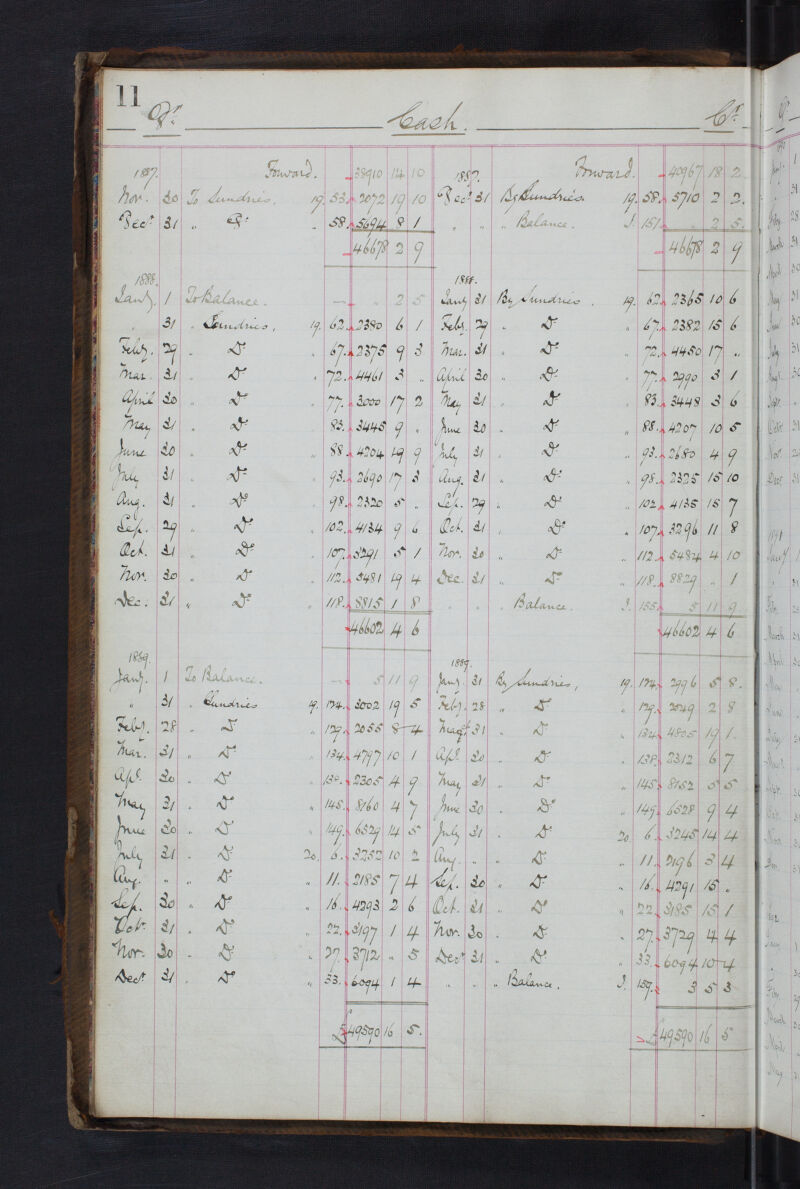 11
Dr. Cash. Cr.
1887. Forward. 38910 14 10 1887. Forward. 40967 18 2
Nov. 30 To Sundries. 19. 53. 2072 19 10 Decr. 31 By Sundries 19. 58. 5710 2 2.
Decr. 31 " Do. " 58. 5694 8 1 " " " Balance. J. 151. " 2 5.
46678 2 9 46678 2 9
1888. 1888.
Jany. 1 To Balance. — " 2 5 Jany 31 By Sundries. 19. 62. 2365 10 6
" 31 " Sundries. 19. 62. 2380 6 1 Feby. 29 " Do " 67. 2382 15 6
Feby. 29 " Do " 67. 2375 9 3 Mar. 31 " Do " 72. 4450 17 "
Mar. 31 " Do " 72. 4461 3 " April 30 " Do " 77. 2990 3 1
April 30 " Do " 77. 3000 17 2 May 31 " Do 83. 3448 3 6
May 31 " Do 83. 3445 9 " June 30 " Do " 88. 4207 10 5
June 30 " Do " 88. 4204 19 9 July 31 " Do " 93. 2680 4 9
July 31 " Do " 93. 2690 17 3 Aug. 31 " Do " 98. 2325 15 10
Aug. 31 " Do " 98. 2320 5 " Sep. 29 " Do " 102. 4135 15 7
Sep. 29 " Do " 102. 4134 9 6 Oct. 31 " Do " 107. 3296 11 8
Oct. 31 " Do " 107. 3291 5 1 Nov. 30 " Do " 112. 5484 4 10
Nov. 30 " Do " 112. 5481 19 4 Dec. 31 " Do " 118. 8829 " 1
Dec. 31 " Do " 118. 8815 1 8 " " " Balance. J. 155. 5 11 9
46602 4 6 46602 4 6
1889. 1889.
Jany. 1 To Balance. — 5 11 9 Jany. 31 By Sundries, 19. 124. 2996 5 8.
" 31 " Sundries 19. 124. 3002 19 5 Feby. 28 " Do " 129. 2049 2 8
Feby. 28 " Do " 129. 2055 8 4 March 31 " Do " 134. 4805 19 1.
Mar. 31 " Do " 134. 4797 10 1 Apl. 30 " Do " 138. 2312 6 7
Apl. 30 " Do " 138. 2305 4 9 May 31 " Do " 145. 8152 5 5
May 31 " Do " 145. 8160 4 7 June 30 " Do " 149. 6528 9 4
June 30 " Do " 149. 6529 14 5 July 31 " Do 20. 6. 3245 14 4
July 31 " Do 20. 6. 3252 10 2 Aug. " " Do " 11. 2196 3 4
Aug. " " Do " 11. 2185 7 4 Sep. 30 " Do " 16. 4291 15 "
Sep. 30 " Do " 16. 4293 2 6 Oct. 31 " Do " 22. 3185 15 1
Octr. 31 " Do " 22. 3197 1 4 Nov. 30 " Do " 27. 3729 4 4
Nov. 30 " Do " 27. 3712 " 5 Decr 31 " Do " 33. 6094 10 4
Decr 31 " Do " 33. 6094 1 4 " " " Balance. J. 159. 3 5 3
£49590 16 5. £49590 16 5